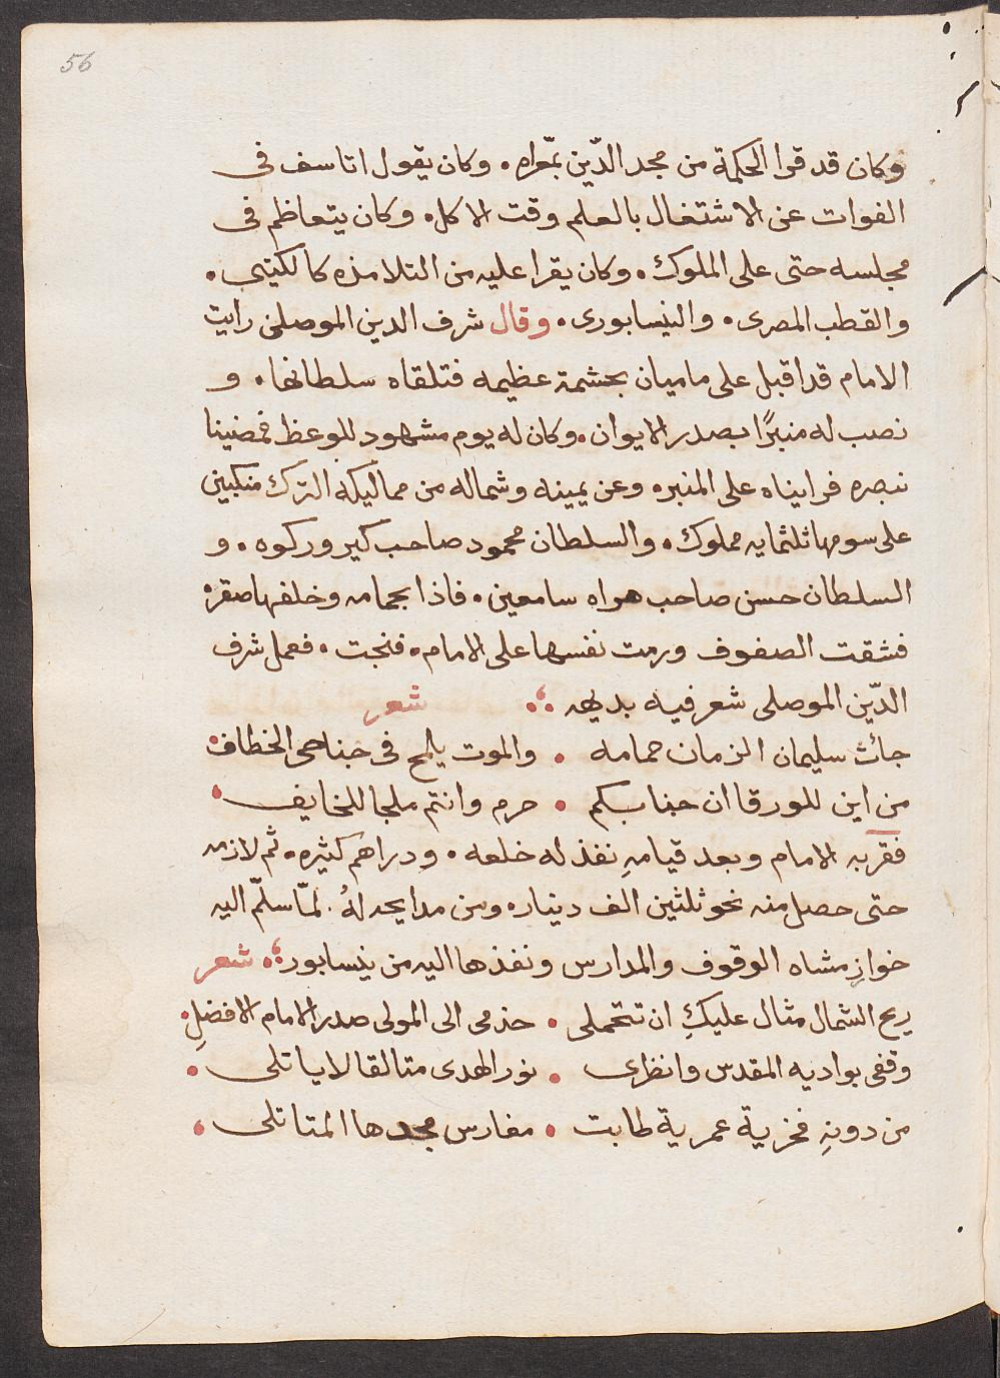 56
وكان قد قرا الحكمة من مجد الدّين بمّعراه. وكان يقول اتاسف فى
الفوات عن الاشتغال بالعلم وقت الاكل. وكان يتعاظم فى
مجلسه حتى على الملوك. وكان يقرا عليه من التلامذه كالكيتبى.
والقطب المصرى. والنيسابورى. وقال شرف الدين الموصلى رايت
الامام قد اقبل على ماميان بحشمة عظيمه فتلقاه سلطانها. و
نصب له منبرًا بصدر الايوان. وكان له يوم مشهود للوعظ فمضينا
نبصره فرايناه على المنبر. وعن يمينه وشماله من مماليكه الترك متكيين
على سومها ثلثمايه مملوك. والسلطان محمود صاحب كيروركوه. و
السلطان حسن صاحب هواه سامعين. فاذا بحمامه وخلفها صقر.
فشقت الصفوف ورمت نفسها على الامام. فنجت. فعمل شرف
الدّين الموصلى شعر فيه بديهه ؛ شعر
جائت سليمان الزمان حمامه . والموت يلمح فى جناحى الخطاف.
من اين للورقا ان جنابكم . حرم وانتم ملجا للخايف .
فقربه الامام وبعد قيامهِ نفذ له خلعه. ودراهم كثيره. ثم لازمه
حتى حصل منه نحو ثلثين الف دينار. ومن مدايحه لهُ. لمّا سلّم اليه
خوارزمشاه الوقوف والمدارس ونفذها اليه من نيسابور ؛ شعر
ريح الشمال مثال عليكِ ان تتحملى . خدمى الى المولى صدر الامام الافضلِ.
وقفى بواديه المقدس وانظرى . نور الهدى متالقا لا ياتلى .
من دونهِ فخرية عمرية طابت . مغارس مجدها المتاتلى .